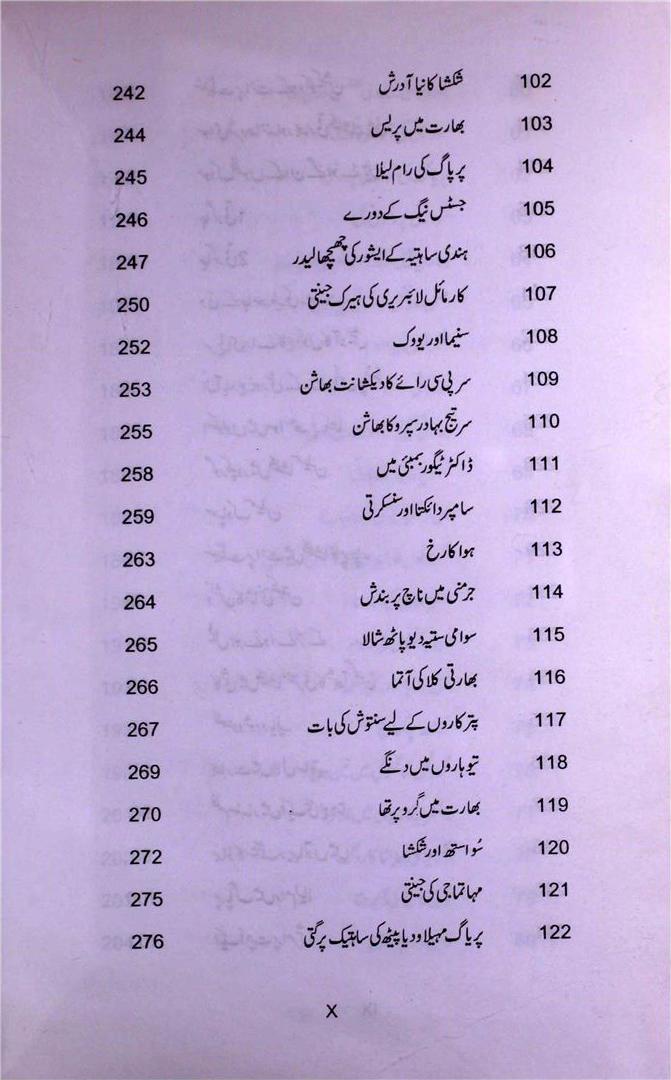 102 شکشا کا نیا آدرش 242
103 بھارت میں پریس 244
104 پریاگ کی رام لیلا 245
105 جسٹس نیگ کے دورے 246
106 ہندی ساہتیہ کے ایشور کی چھیچھا لیدر 247
107 کارمائل لائبریری کی ہیرک جینتی 250
108 سنیما اور یووک 252
109 سر پی سی رائے کا دیکشانت بھاشن 253
110 سر تیج بہادر سپرو کا بھاشن 255
111 ڈاکٹر ٹیگور بمبئی میں 258
112 سامپردائکتا اور سنسکرتی 259
113 ہوا کا رخ 263
114 جرمنی میں ناچ پر بندش 264
115 سوامی ستیہ دیو پاٹھ شالا 265
116 بھارتی کلا کی آتما 266
117 پتر کاروں کے لیے سنتوش کی بات 267
118 تیوہاروں میں دنگے 269
119 بھارت میں گرو پرتھا 270
120 سُواستھ اور شکشا 272
121 مہاتما جی کی جینتی 275
122 پریاگ مہیلا ودیا پیٹھ کی ساہتیک پرگتی 276
X